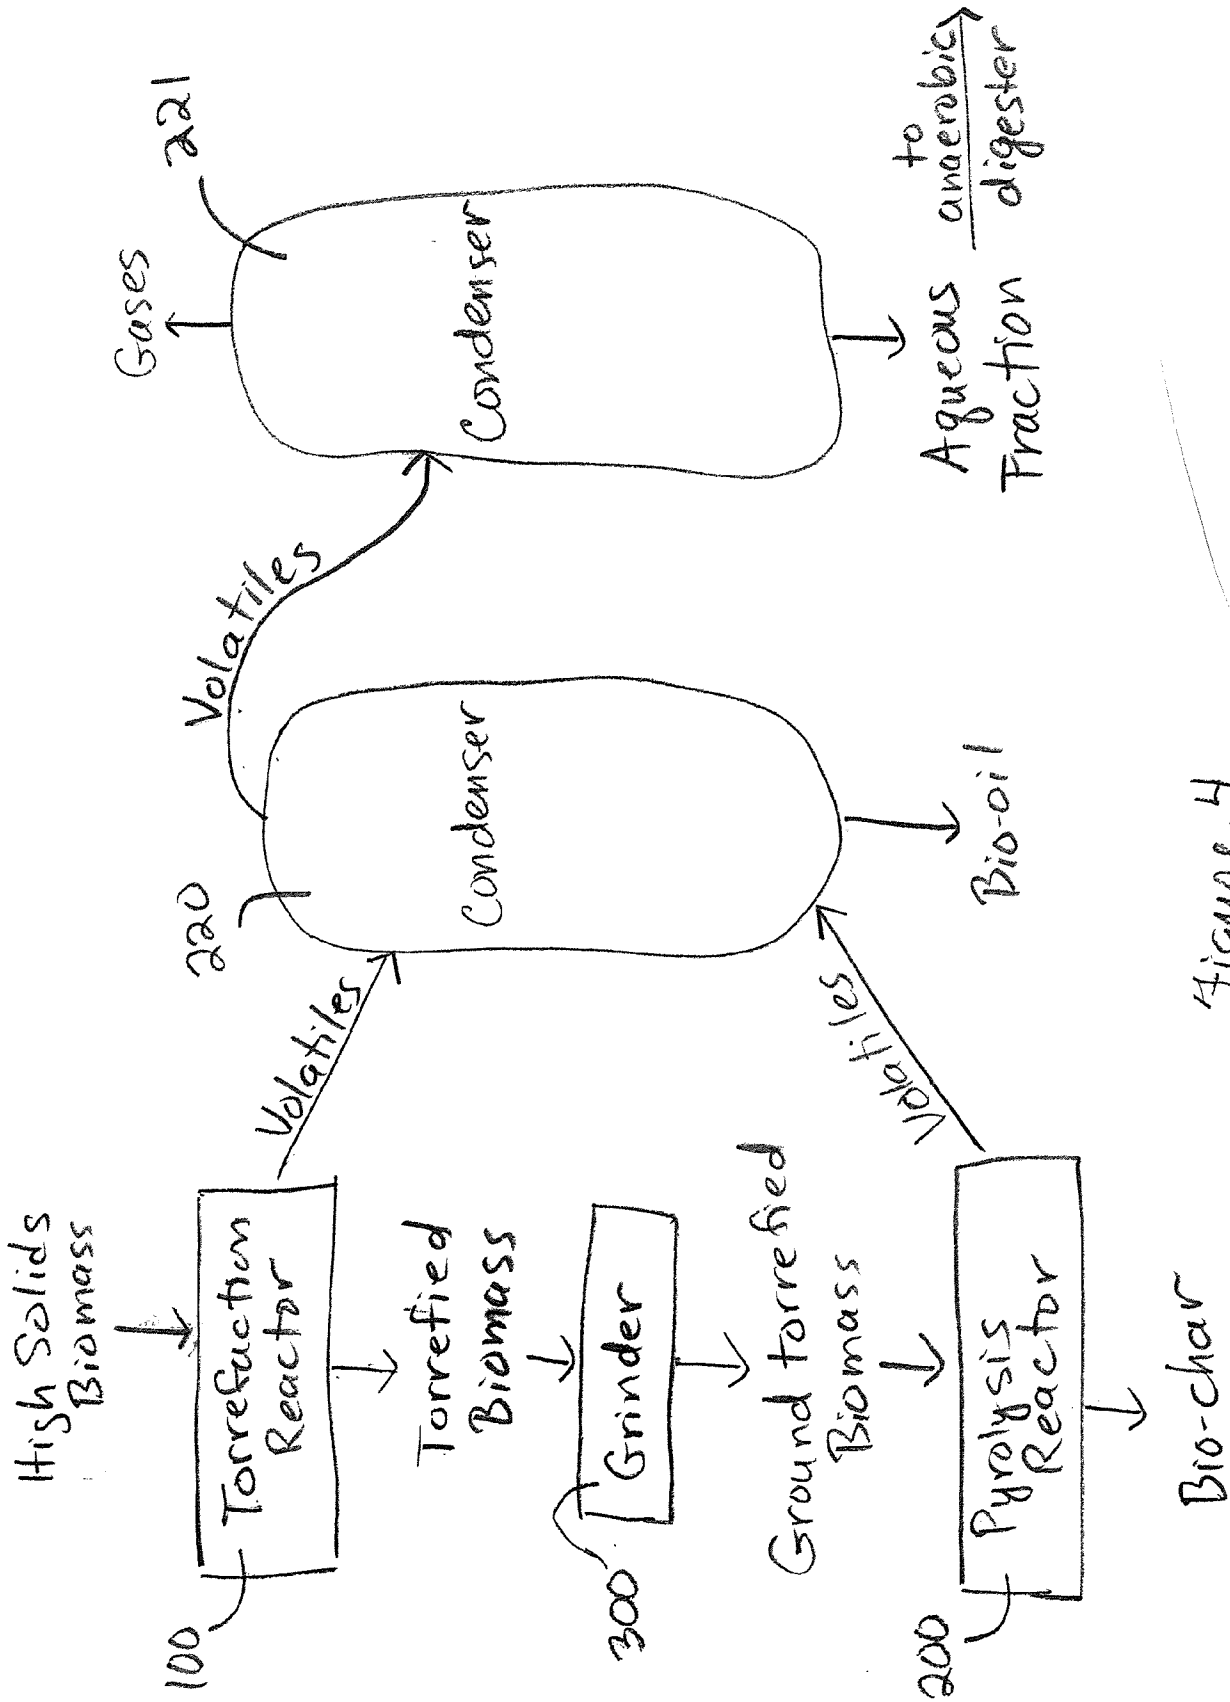 High Solids
Biomass
100
Torrefaction
Reactor
Volatiles
Torrefied
Biomass
300
Grinder
Ground torrefied
Biomass
200
Pyrolysis
Reactor
Volatiles
Bio-char
220
Condenser
Bio-oil
Volatiles
Gases
221
Condenser
Aqueous
Fraction
to
anaerobic
digester
Figure 4